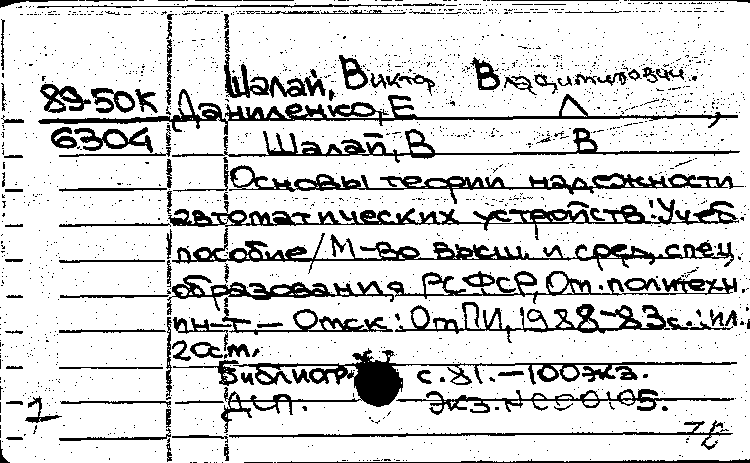 Шалай, Виктор Владимирович.
89-50К Даниленко, Е Л,
6304 Шалай, В В
Основы теории надежности
автоматических устройств: Учеб.
пособие/М-во высш. и сред. спец.
образования РСФСР, Ом. политехн.
ин-т. — Омск: ОмПИ, 1988-83с.: ил.;
20см.
Библиогр. с.81. — 100экз.
ДСП. Экз.N 000105.